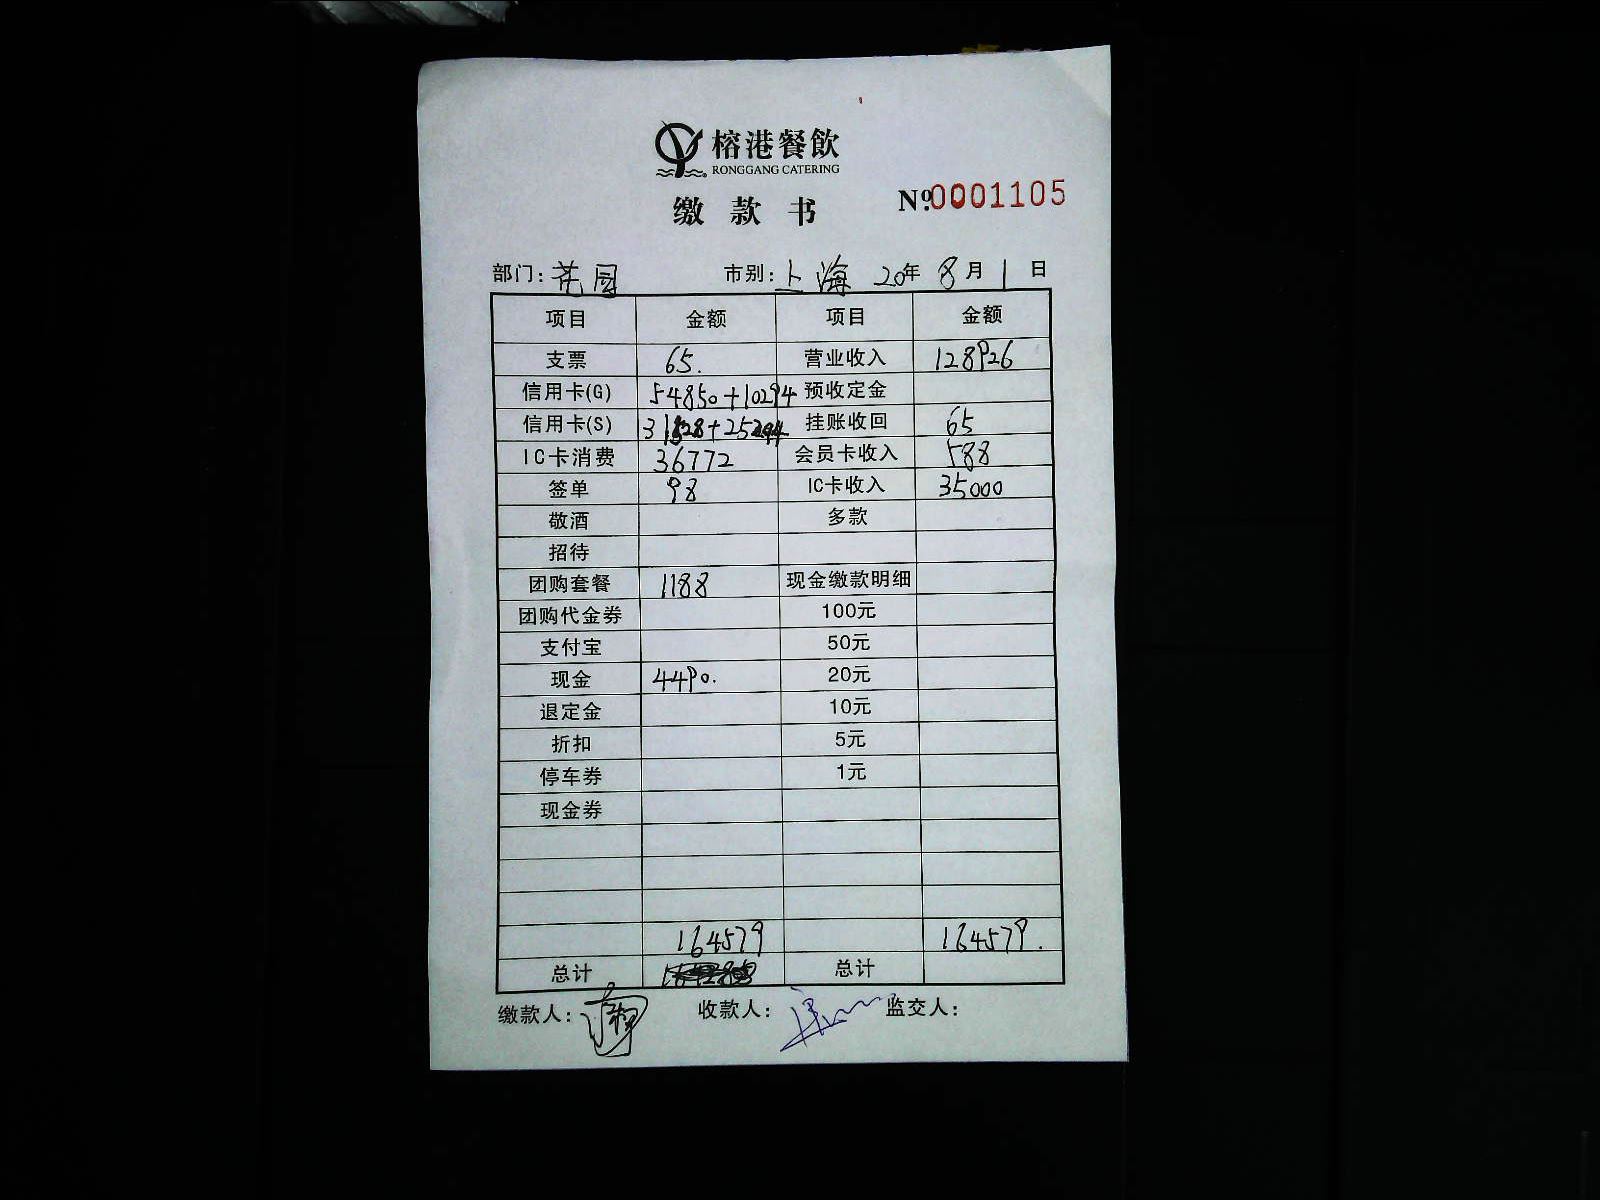 榕港餐飲
RONGGANG CATERING
缴款书 Nº.0001105
部门: 花园 市别: 上海 20年 8月 1日
项目 金额 项目 金额
支票 65. 营业收入 128926
信用卡(G) 54850+10294 预收定金
信用卡(S) 31528+25294 挂账收回 65
IC卡消费 36772 会员卡收入 588
签单 98 IC卡收入 35000
敬酒 多款
招待
团购套餐 1188 现金缴款明细
团购代金券 100元
支付宝 50元
现金 4490. 20元
退定金 10元
折扣 5元
停车券 1元
现金券
164579 164579.
总计 总计
缴款人: 收款人: 监交人: